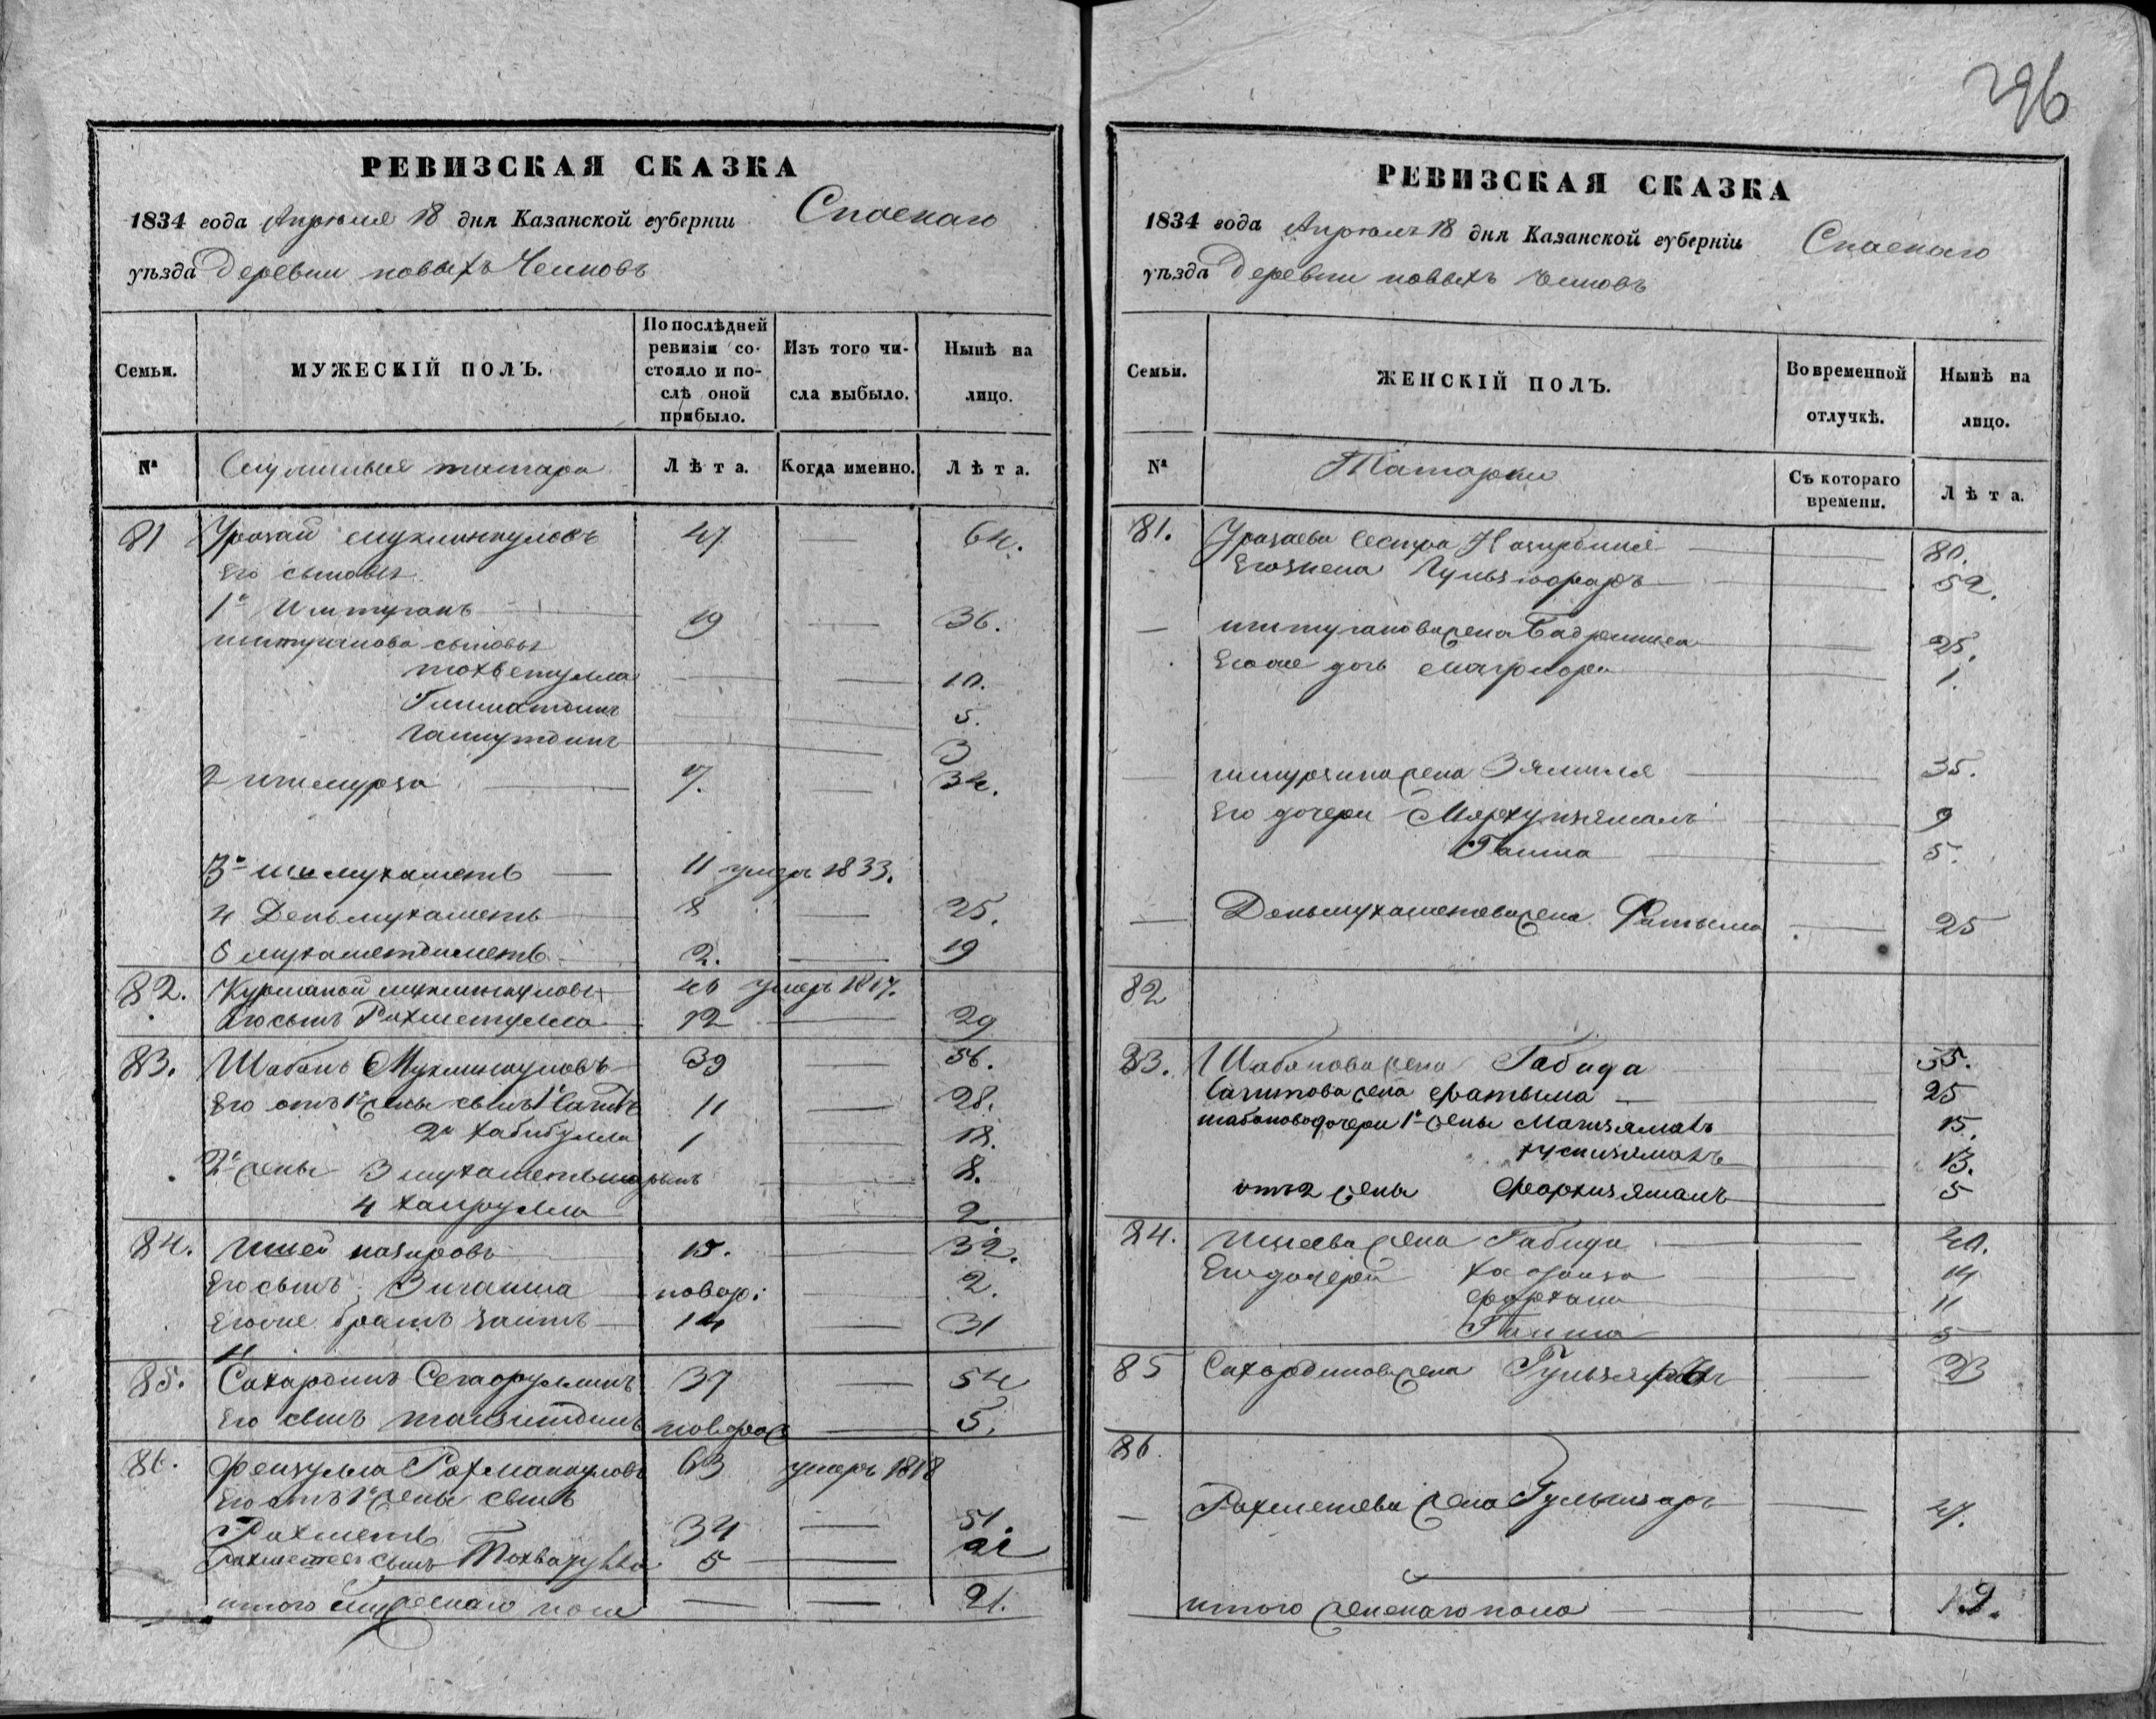 296
РЕВИЗСКАЯ СКАЗКА
1834 года Апреля 18 дня Казанской губернiи Спаскаго
уѣзда деревни новыхъ Челновъ
Семьи.
МУЖЕСКIЙ ПОЛЪ.
По послѣдней ревизiи состояло и послѣ оной прибыло.
Изъ того числа выбыло.
Нынѣ на лицо.
№
Служилые татара
Лѣта.
Когда именно.
Лѣта.
81 Уразай Мукминкуловъ 47 — 64.
Его сыновья
1й Иштуганъ 19 — 36.
иштуганова сыновья
тохветулла — — 10.
Гимматдинъ 5.
3
2 ишмурза 17. — 34.
3й ишмухаметь — 11 умеръ 1833.
4 Деньмухаметь 8 — 25.
5 мухаметдиметь 2. — 19
82. Курманай мукминкуловъ 40 умеръ 1817.
Его сынъ Рахметулла 12 — 29
83. Шабанъ Мукминкуловъ 39 — 56.
Его отъ 1й жены сынъ 1й Саитъ 11 — 28.
2й хабибулла 1 — 18.
2й жены 3 мухаметьшарыпъ — 8.
4 хайрулла — 2.
84. Ишей назировъ 15. — 32.
Его сынъ Зиганша новор: — 2.
Егоже братъ заитъ 14 — 31
85. Сахардинъ Сегафуллинъ 37 — 54
Его сынъ новорож — 5.
86. Фейзулла Рахманкуловъ 63 умеръ 1818
Его отъ 1й жены сынъ
Рахметь 34 — 51.
Рахметевъ сынъ Тохватулла 5 — 22
итого мужескаго пола — — 21.
РЕВИЗСКАЯ СКАЗКА
1834 года Апреля 18 дня Казанской губернiи Спаскаго
уѣзда деревни новыхъ Челновъ
Семьи.
ЖЕНСКIЙ ПОЛЪ.
Во временной отлучкѣ.
Нынѣ на лицо.
№
Татарки
Съ котораго времени.
Лѣта.
81. Уразаева сестра — 80.
Его жена — 52.
— иштуганова жена Бадриниса — 25.
Егоже дочь — 1.
— ишмурзина жена Зямиля — 35.
Его дочери — 9
Гайша — 5.
— Деньмухаметева жена Фатыма — 25
82
83. Шабанова жена Габида 35.
Саитова жена фатыма — 25
шабановы дочери 1й жены Магизямалъ 15.
хуснизямалъ 13.
отъ 2 жены Фархизямалъ 5
84. Ишеева жена Габида — 40.
Его дочери — 14
11
Гайша — 5
85 Сахардинова жена — 23
86.
— Рахметева жена — 47.
итого женскаго пола — 19.